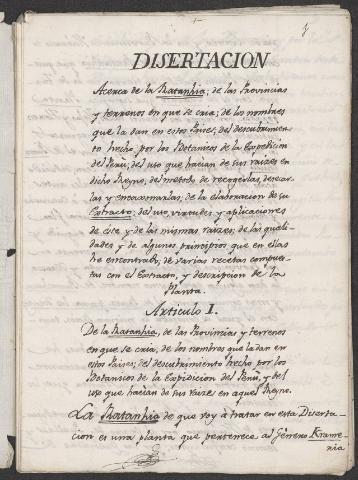 DISERTACION
Acerca de la Ratanhia; de las Provincias
y terrenos en que se cria; de los nombres
que la dan en estos Paises; del descubrimien-
to hecho, por los Botanicos de la Expedicion
del Perú; del uso que hacian de sus raizes en
dicho Reyno, del método de recogerlas, desecar-
las y encaxonarlas; de la elaboracion de su
Extracto; del uso, virtudes y aplicaciones
de éste y de las mismas raizes; de las quali-
dades y de algunos principios que en ellas
he encontrado, de varias recetas compues-
tas con el Extracto, y descripcion de la
Planta.
Articulo I.
De la Ratanhia, de las Provincias y terrenos
en que se cria, de los nombres que la dan en
estos Paises; del descubrimiento hecho por los
Botanicos de la Expedicion del Perú, y del
uso que hacian de sus raizes en aquel Reyno.
La Ratanhia de que voy á tratar en esta Diserta-
cion es una planta que pertenece al Género Krame-
ria